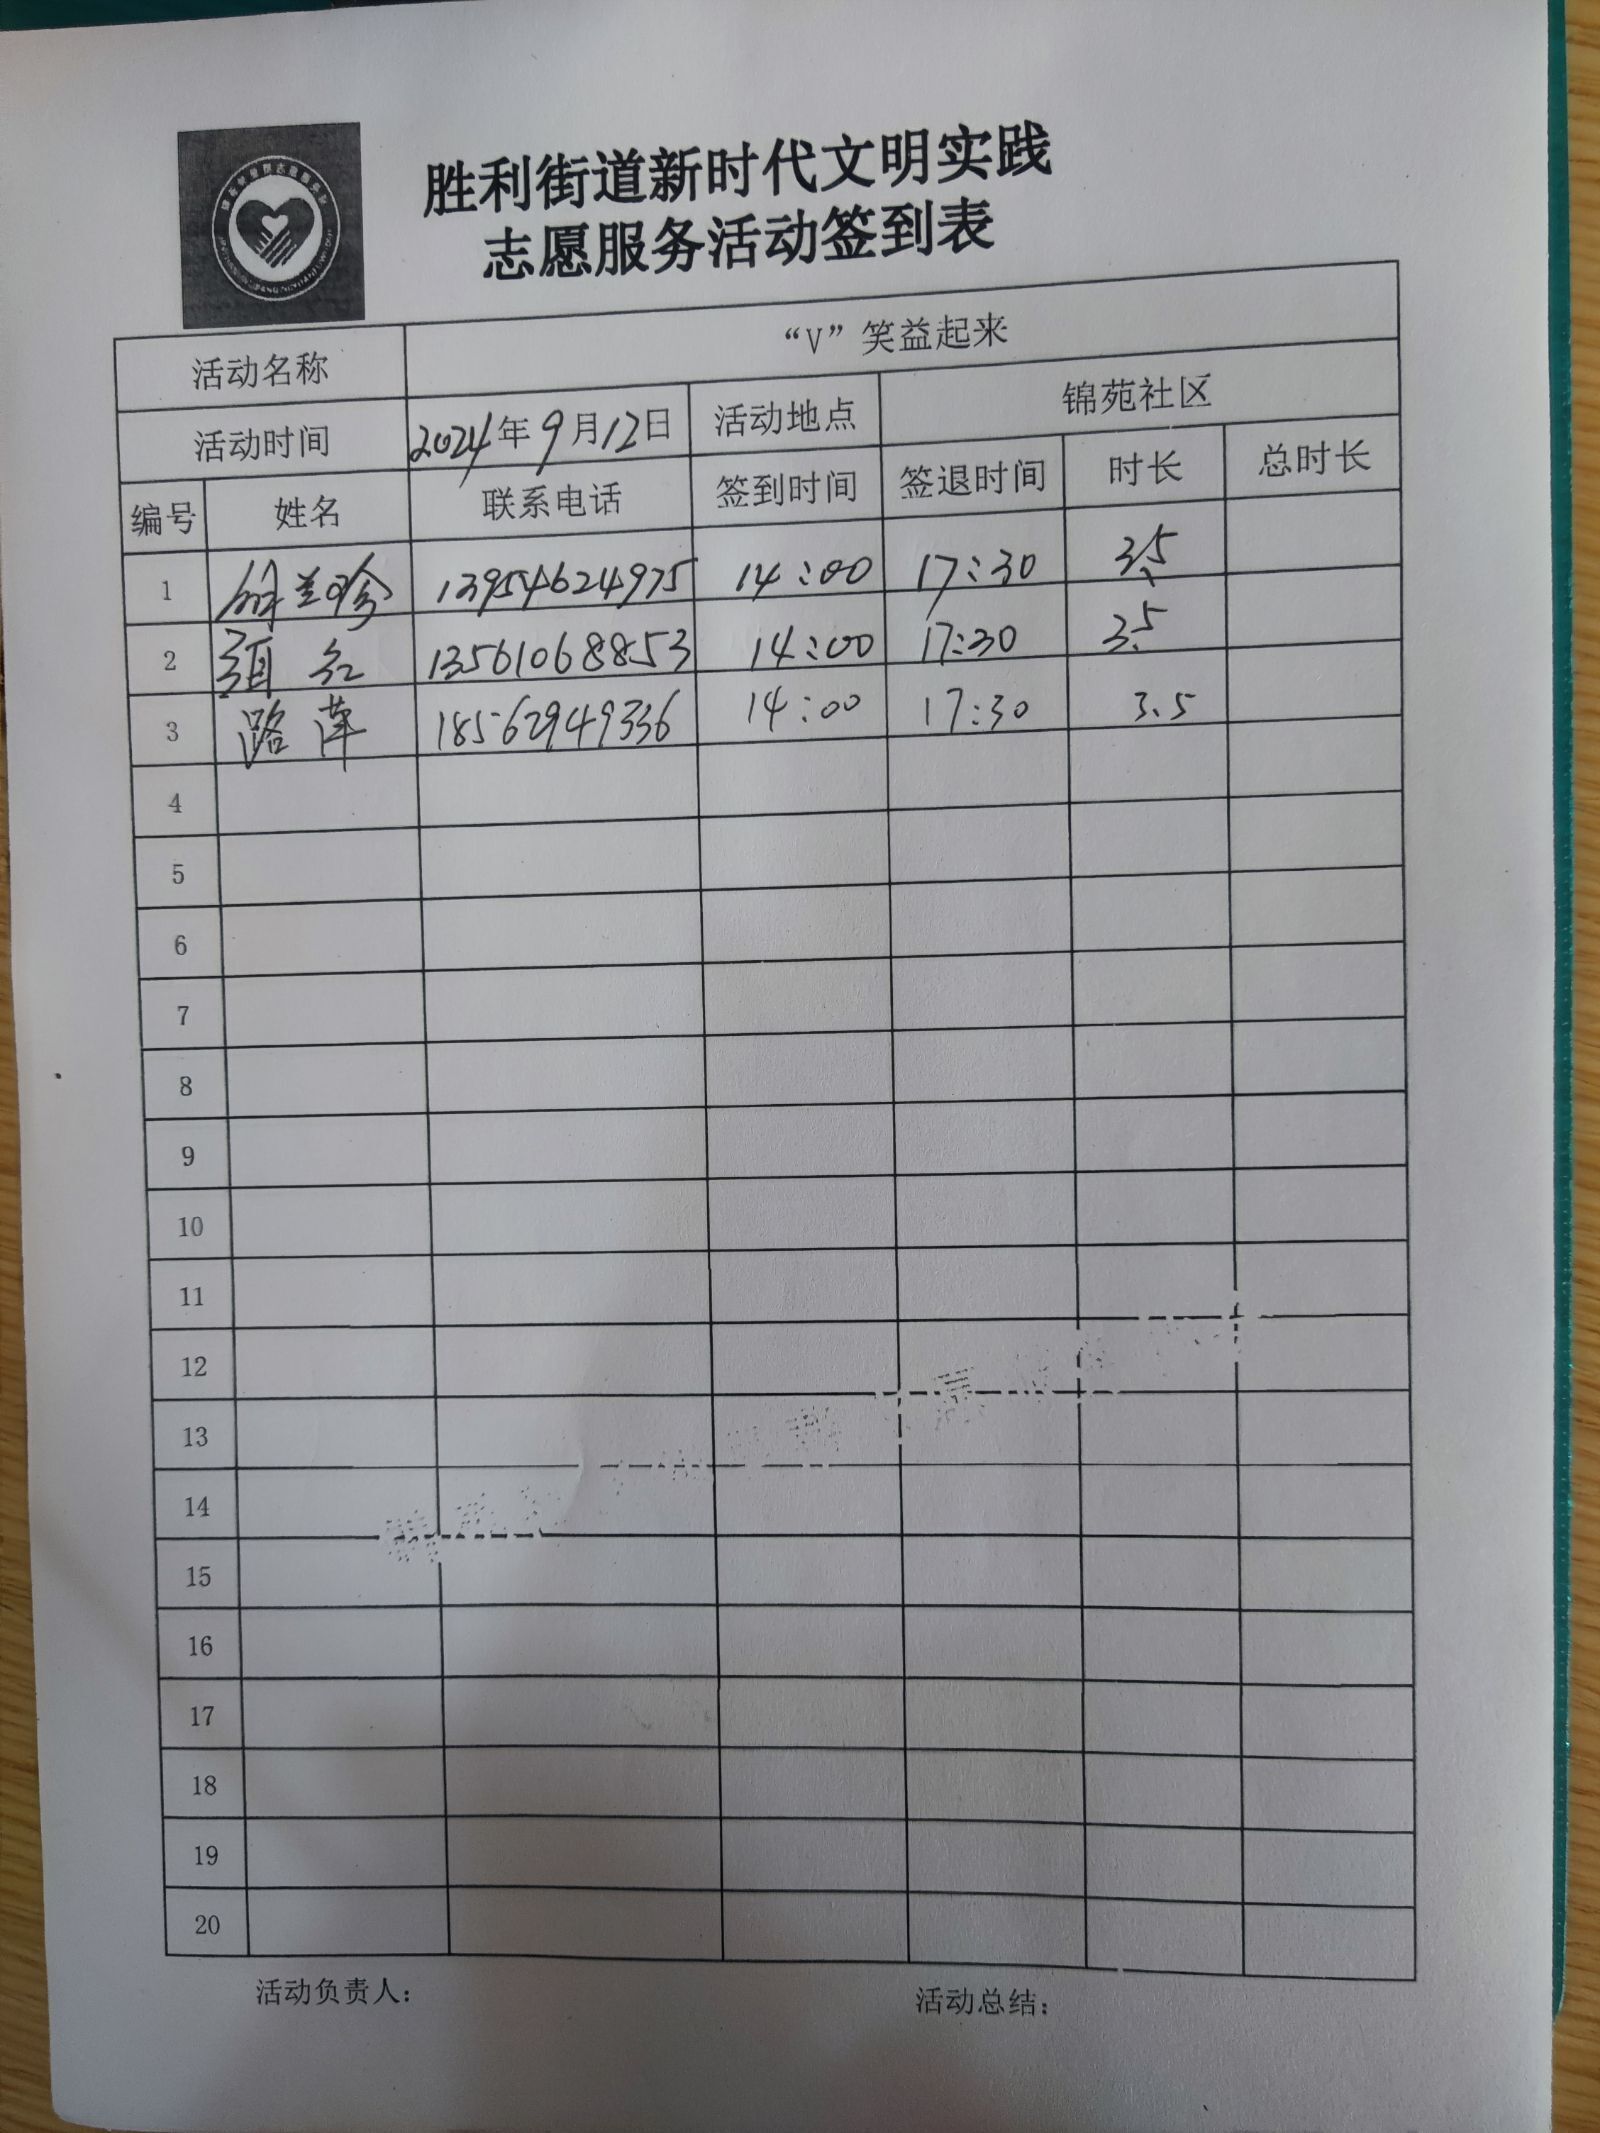 胜利街道新时代文明实践
志愿服务活动签到表
活动名称 “V”笑益起来
活动时间 2024年9月12日 活动地点 锦苑社区
编号 姓名 联系电话 签到时间 签退时间 时长 总时长
1 13954624975 14:00 17:30 3.5
2 红 13561068853 14:00 17:30 3.5
3 路萍 18562949336 14:00 17:30 3.5
4
5
6
7
8
9
10
11
12
13
14
15
16
17
18
19
20
活动负责人: 活动总结: